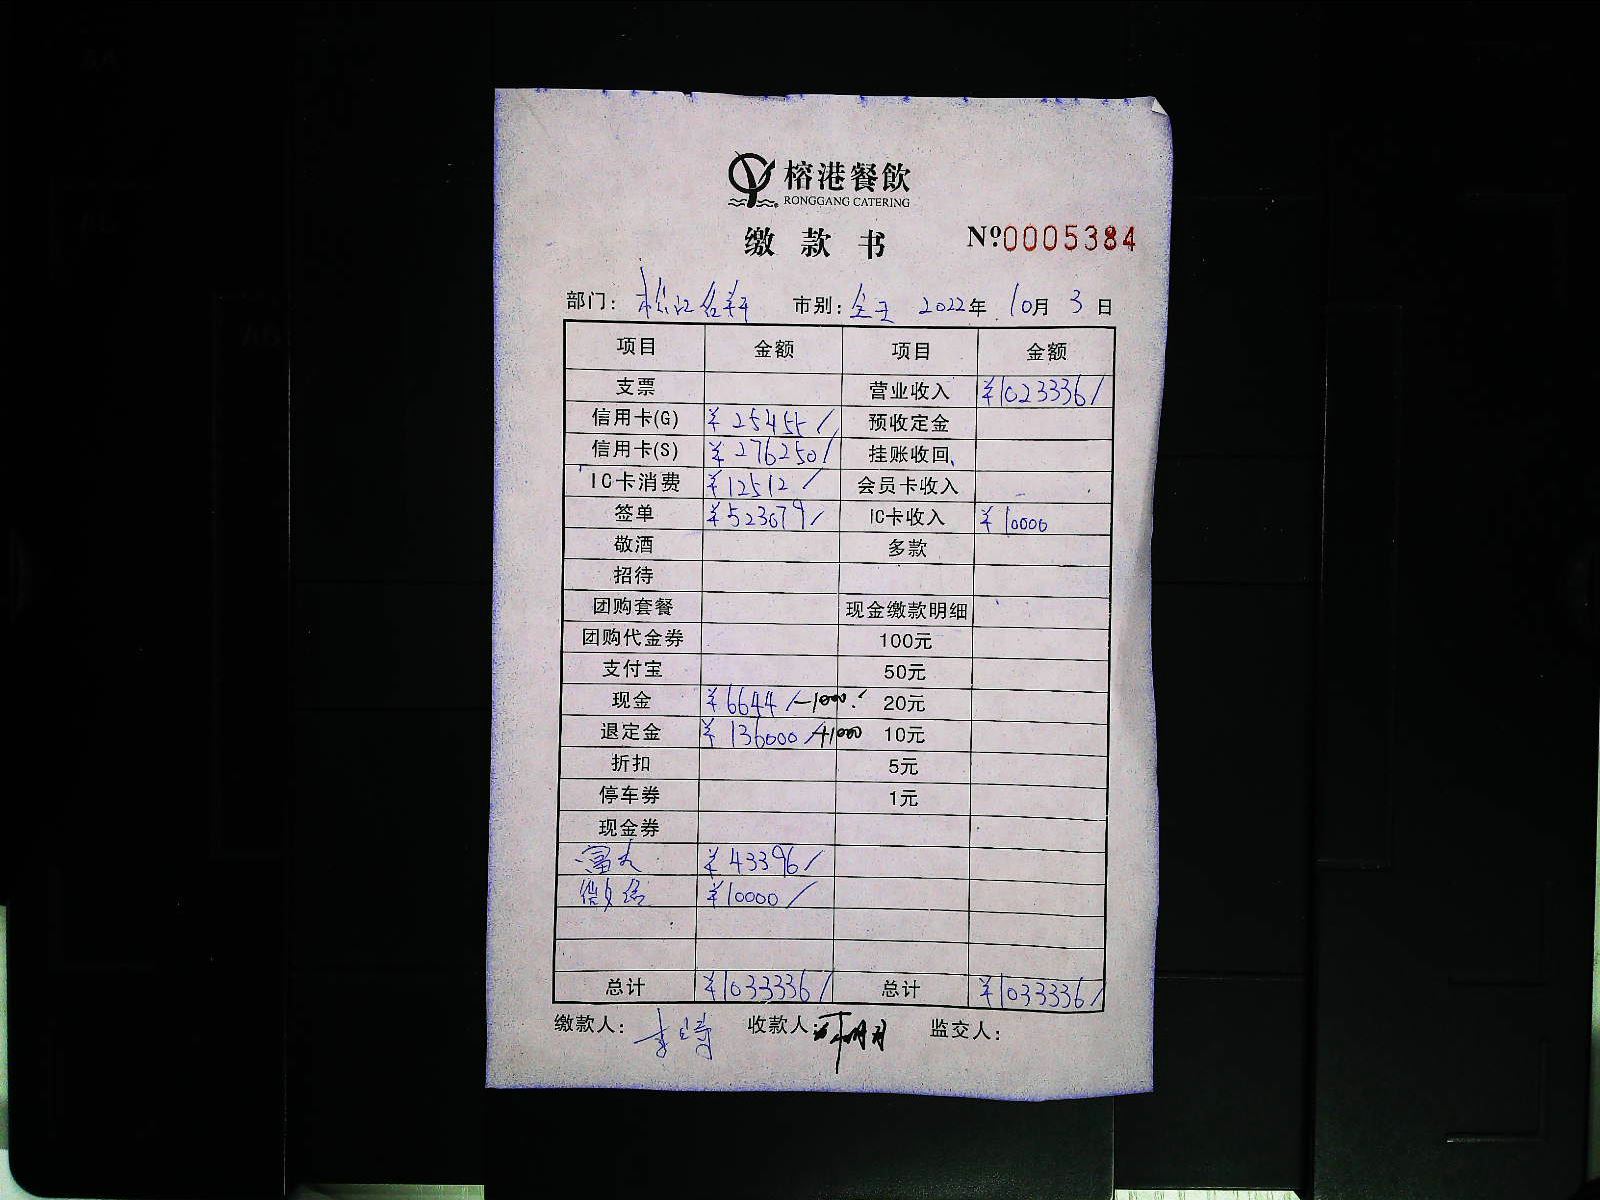 榕港餐飲
RONGGANG CATERING
缴款书 Nº:0005384
部门: 松江名轩 市别: 全天 2022年 10月 3日
项目 金额 项目 金额
支票 营业收入 ¥1023336/
信用卡(G) ¥25455/ 预收定金
信用卡(S) ¥276250/ 挂账收回
IC卡消费 ¥12512/ 会员卡收入
签单 ¥523079/ IC卡收入 ¥10000
敬酒 多款
招待
团购套餐 现金缴款明细
团购代金券 100元
支付宝 50元
现金 ¥6644/ -1000 20元
退定金 ¥136000/ +1000 10元
折扣 5元
停车券 1元
现金券
富友 ¥43396/
微信 ¥10000/
总计 ¥1033336/ 总计 ¥1033336/
缴款人: 收款人: 监交人: